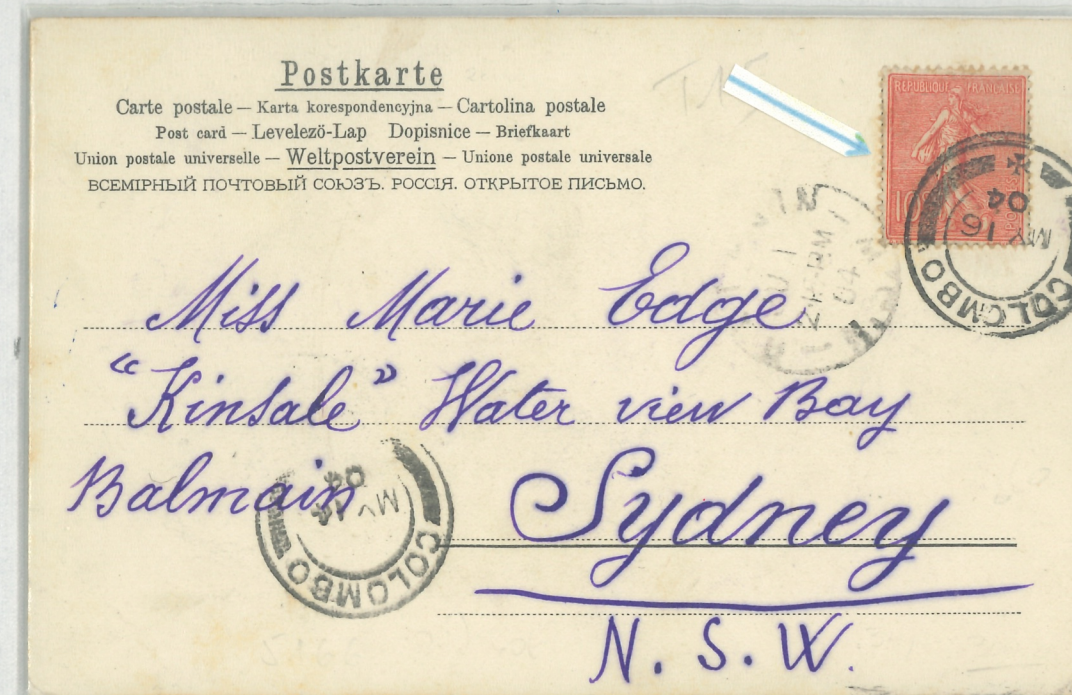 Postkarte
Carte postale — Karta korespondencyjna — Cartolina postale
Post card — Levelezö-Lap Dopisnice — Briefkaart
Union postale universelle — Weltpostverein — Unione postale universale
ВСЕМІРНЫЙ ПОЧТОВЫЙ СОЮЗЪ. РОССІЯ. ОТКРЫТОЕ ПИСЬМО.
REPUBLIQUE FRANÇAISE
10
COLOMBO
MY 16
04
Miss Marie Edge
"Kinsale" Water view Bay
Balmain
Sydney
N. S. W.
COLOMBO
MY 14
04